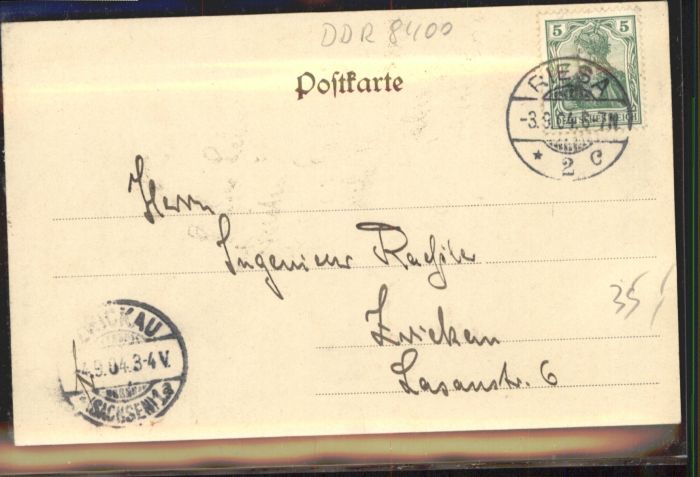 DDR 8400
Postkarte
5 5
DEUTSCHES REICH
RIESA
-3.9.04.6-7N
* 2 c
Herrn
Ingenieur
Zwickau
Lasanstr. 6
35
ZWICKAU
4.9.04.3-4V.
(SACHSEN) 1a